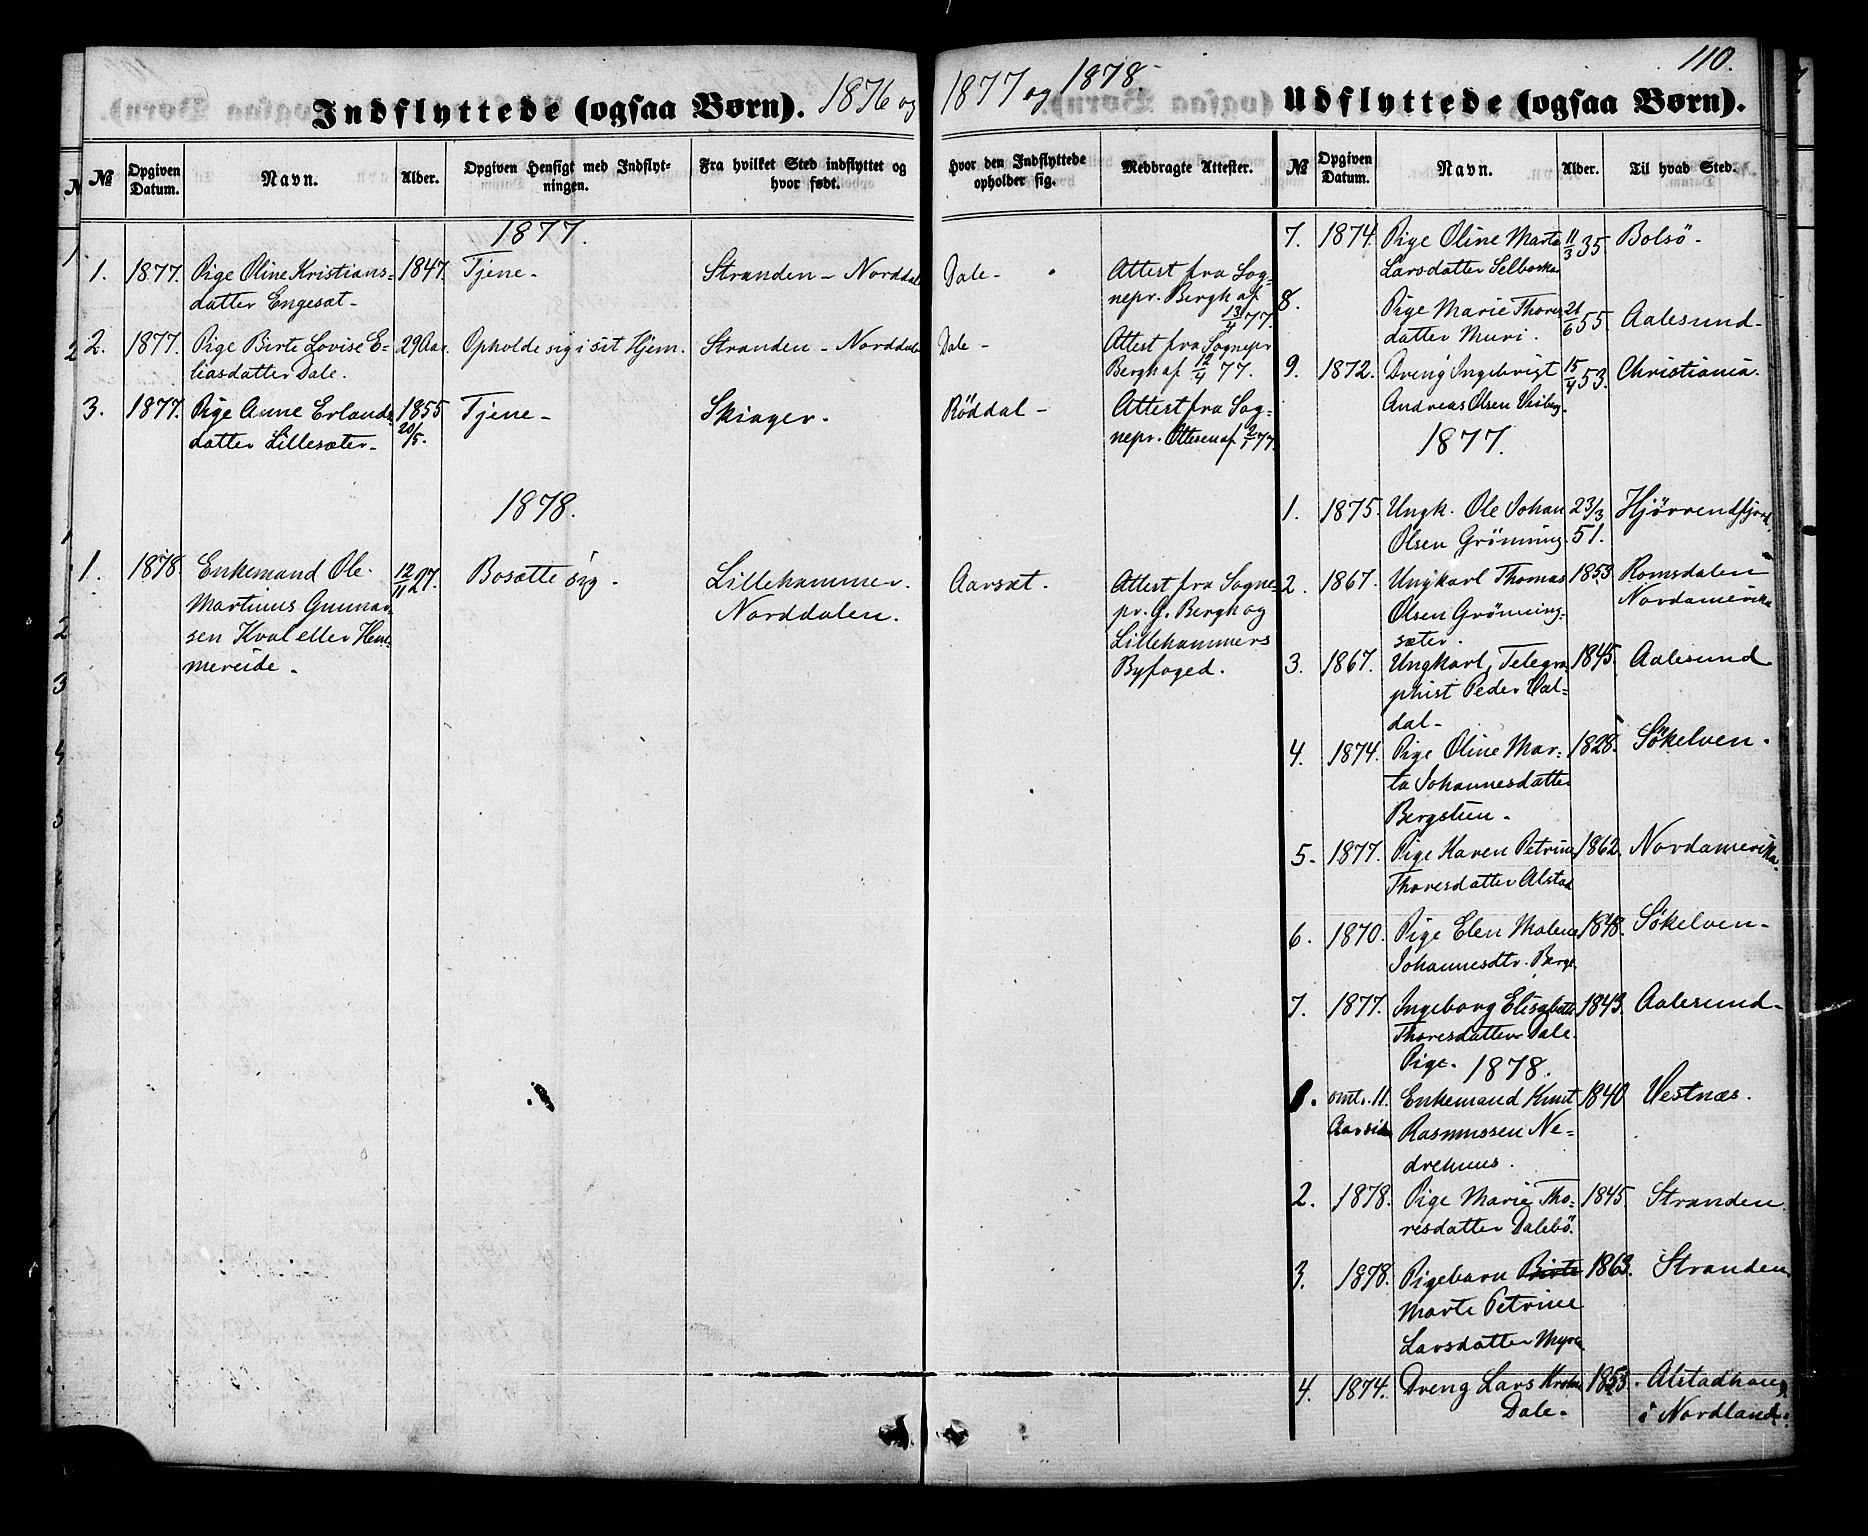 110.
Indflyttede (ogsaa Børn). 1876 og 1877 og 1878. Udflyttede (ogsaa Børn).
№ Opgiven Datum. Navn. Alder. Opgiven Hensigt med Indflytningen. Fra hvilket Sted indflyttet og hvor født. Hvor den Indflyttede opholder sig. Medbragte Attester.
1877.
1. 1877. Pige Oline Kristians- 1847. Tjene- Stranden - Norddal Dale- Attest fra Sog-
datter Engeset- nepr. Bergh af
13/4 77.
2. 1877. Pige Birte Lovise E- 29 Aar. Opholde sig i sit Hjem. Stranden - Norddal Dale- Attest fra Sognepr
liasdatter Dale. Bergh af 12/4 77.
3. 1877. Pige Anne Erlands 1855 Tjene- Skiager. Røddal - Attest fra Sog-
datter Lillesæter- 20/5. nepr. Ottesen af 2/1 77.
1878.
1. 1878. Enkemand Ole 12/11 27. Bosætte sig. Lillehammer. Aarsæt. Attest fra Sogne
Martinus Gunnar- Norddalen. pr. G. Bergh og
sen Kval eller Hem- Lillehammers
mereide. Byfoged.
№ Opgiven Datum. Navn. Alder. Til hvad Sted.
7. 1874. Pige Oline Marta 11/3 35. Bolsö.
Larsdatter Selboska
8. Pige Marie Thores 21/6 55. Aalesund-
datter Muri.
9. 1872. Dreng Ingebrigt 15/4 53. Christiania.
Andreas Olsen
1877.
1. 1875. Ungk. Ole Johan 23/3 Hjørrendfjord,
Olsen Gröning 51.
2. 1867. Ungkarl Thomas 1853. Romsdalen i
Olsen Grönning- Nordamerika
sæter.
3. 1867. Ungkarl, Telegra 1845. Aalesund
phist Peder Val-
dal-
4. 1874. Pige Oline Mar- 1828. Sökelven.
ta Johannesdatter
Bergstien.
5. 1877. Pige Karen Petrina 1862. Nordamerika.
Thoresdatter Alstad
6. 1870. Pige Elen Malene 1848. Sökelven-
Johannesdtr. Berge.
7. 1877. Ingeborg Elisabeth 1843. Aalesund-
Thoresdatter Dale.
Pige. 1878.
1. omt. 11. Enkemand Knut 1840 Vestnæs.
Aar siden Rasmussen Ne-
drehuus.
2. 1878. Pige Marie Tho- 1845. Stranden.
resdatter Dalebö.
3. 1878. Pigebarn Birte 1863. Stranden
Marte Petrine
Larsdatter Myra
4. 1874. Dreng Lars 1853. Alstadhaug
Dale. i Nordland.